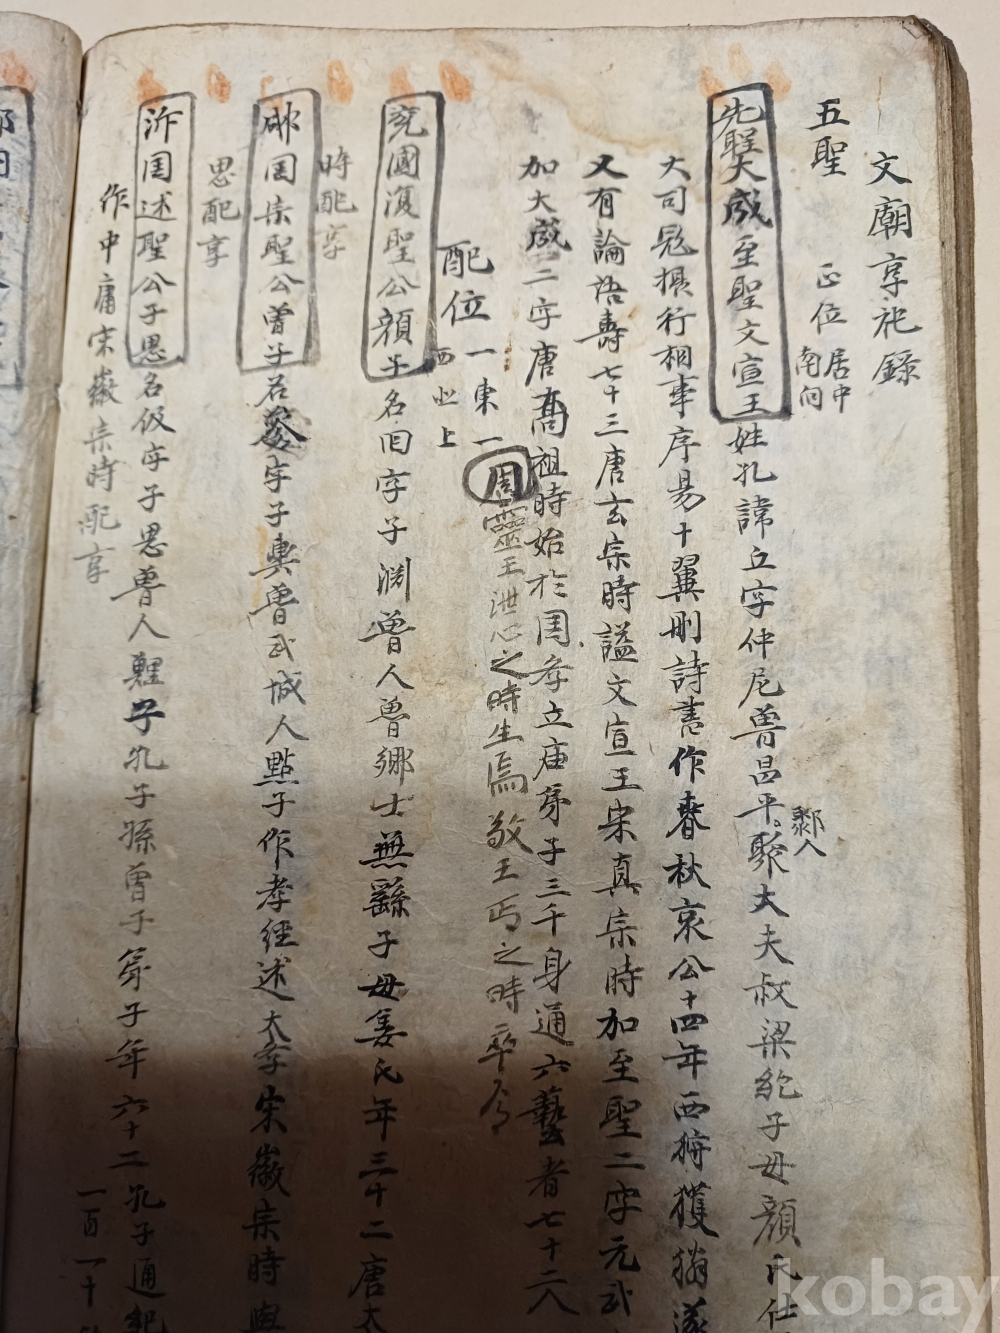 文廟享祀錄
五聖 正位 居中南向
先聖大成至聖文宣王姓孔諱丘字仲尼魯昌平鄹大夫叔梁紇子母顏氏仕
鄹人
大司寇摄行相事序易十翼刪詩書作春秋哀公十四年西狩獲獜遂
又有論語壽七十三唐玄宗時謚文宣王宋真宗時加至聖二字元武
加大成二字唐高祖時始於国李立庙弟子三千身通六藝者七十二人
周靈王泄心之時生焉敬王丐之時卒
配位 一東一西 北上
兖國復聖公顏子名回字子淵魯人魯鄉士無繇子母姜氏年三十二唐太
時配享
郕国宗聖公曾子名參字子輿魯武城人點子作孝經述大李宋徽宗時與
思配享
沂国述聖公子思名伋字子思魯人鯉子孔子孫曾子弟子年六十二孔子通紀
一百一十
作中庸宋徽宗時配享